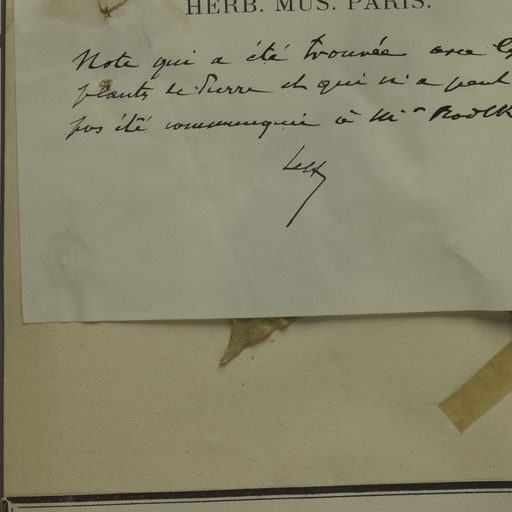 HERB. MUS. PARIS.
Note qui a été trouvée avec les
plantes de Pierre et qui n'a peut
pas été communiquée à Mr